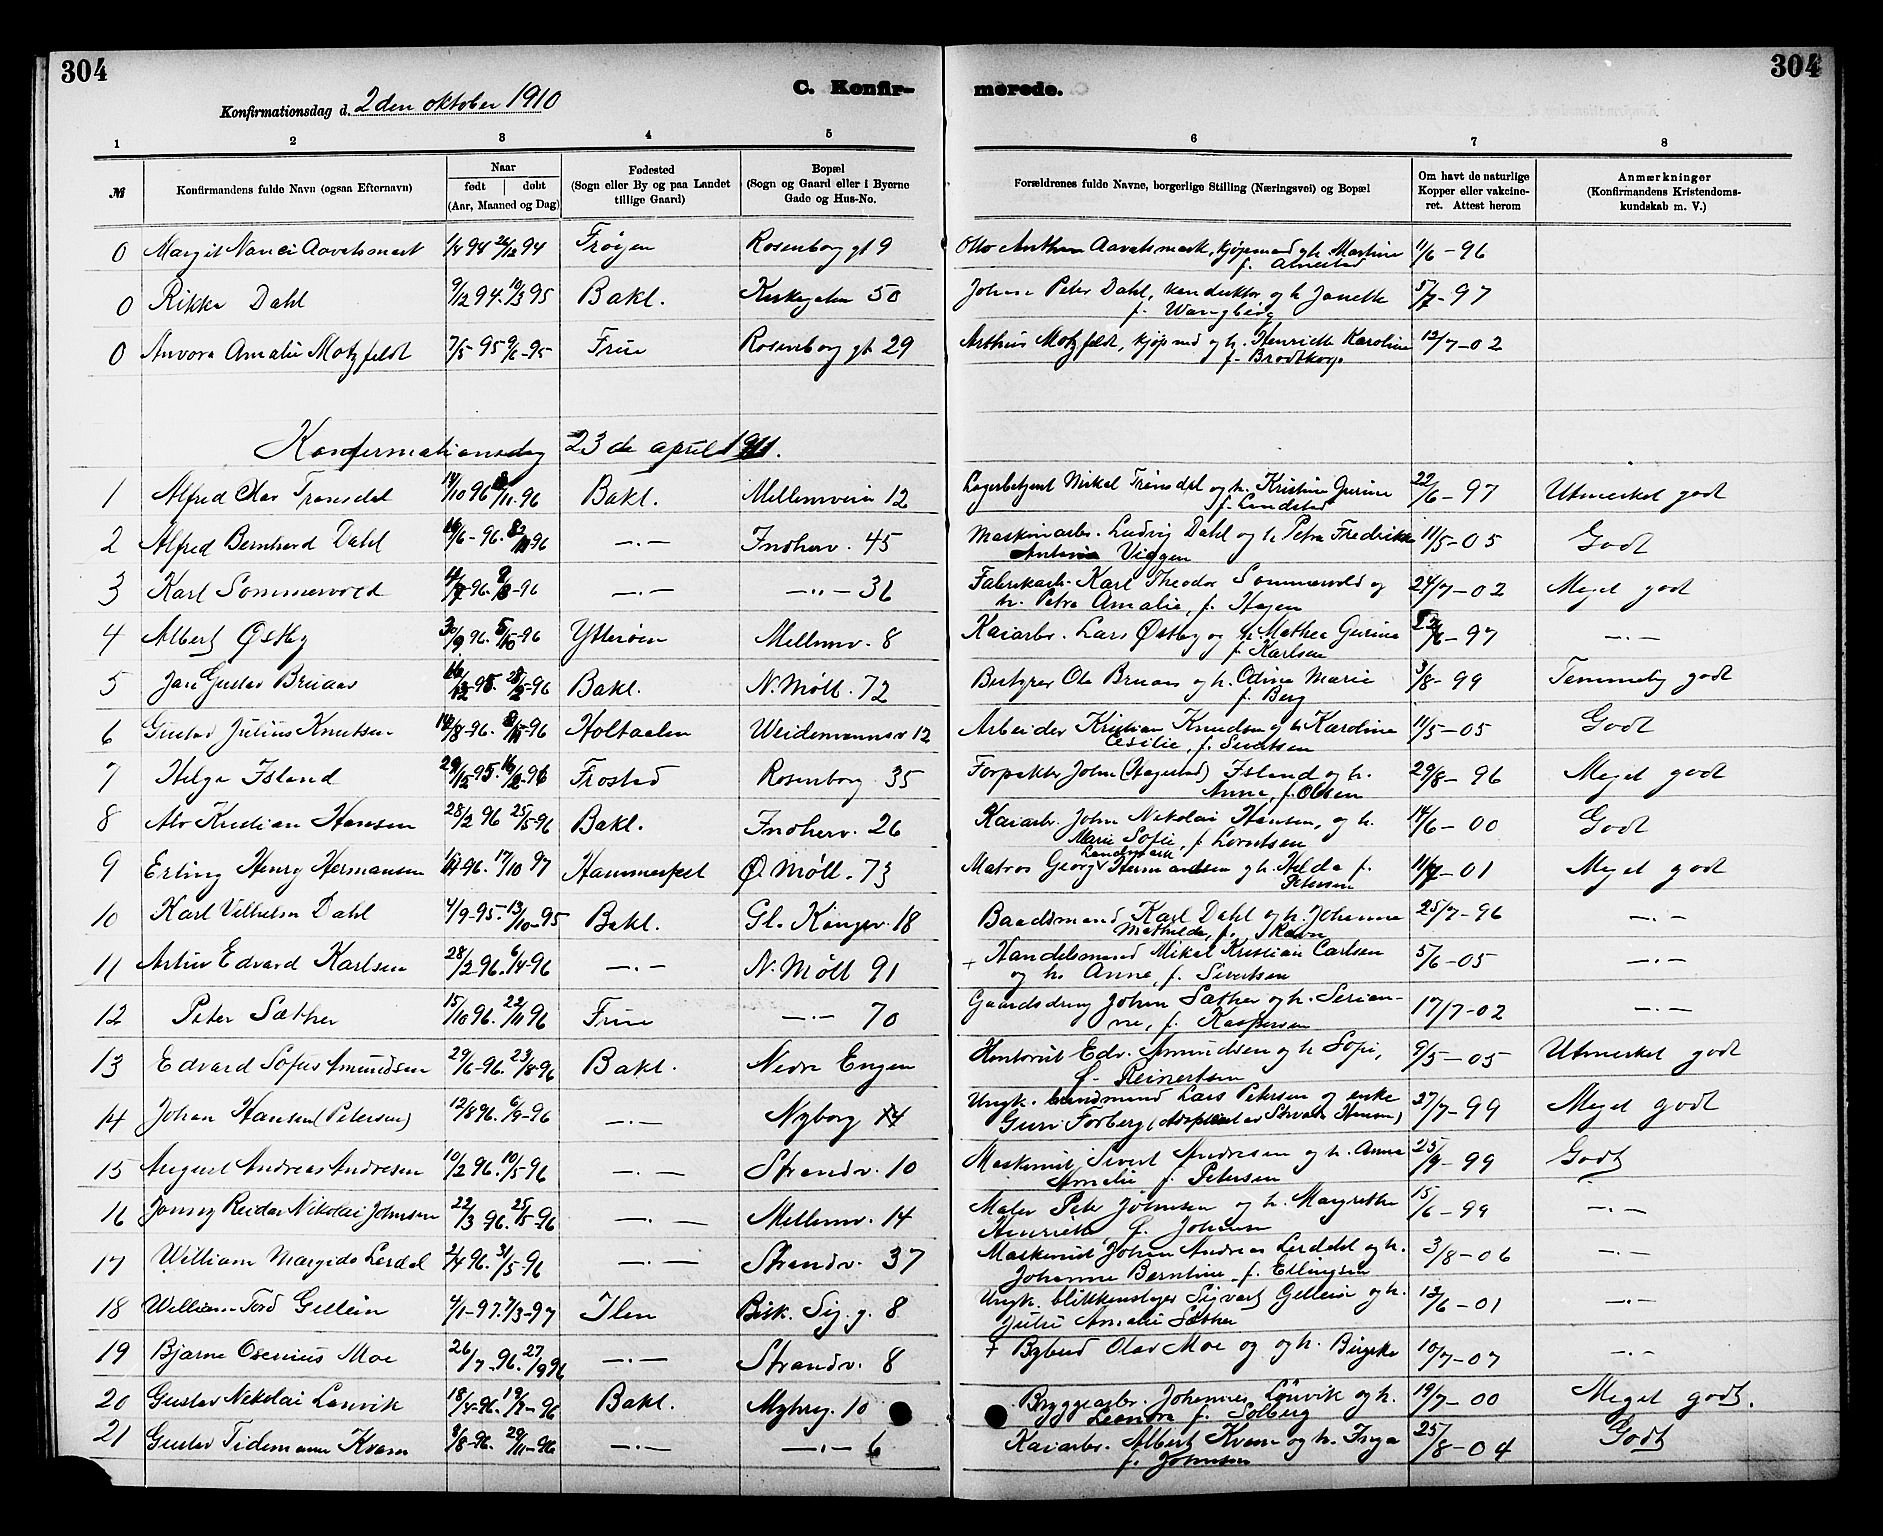 304
304
C. Konfir-
merede.
Konfirmationsdag d. 2den oktober 1910
1 2 3 4 5 6 7 8
№ Konfirmandens fulde Navn (ogsaa Efternavn) Naar født døbt (Aar, Maaned og Dag) Fødested (Sogn eller By og paa Landet tillige Gaard) Bopæl (Sogn og Gaard eller i Byerne Gade og Hus-No. Forældrenes fulde Navne, borgerlige Stilling (Næringsvei) og Bopæl Om havt de naturlige Kopper eller vakcineret. Attest herom Anmærkninger (Konfirmandens Kristendomskundskab m. V.)
0 Margit Nanci Aavatsmark 94 94 Frøyen Rosenborg gt 9 Otto Anthon Aavatsmark, kjøpmand og h. Martine 11/6-96
f. Almestad
0 Rikka Dahl 9/12 94. 10/3 95 Bakl. Kirkegaten 50 Johan Peter Dahl, konduktør og h. Janette 5/7-97
f. Wangberg
0 Anvora Amalie Motzfeldt 7/5-95 9/6-95 Frue Rosenborg gt 29 Arthur Motzfeldt, kjøpmd og h. Henriette Karoline 12/7-02
f. Brodtkorp
Konfirmationsdag 23de april 1911.
1 Alfred Olav Trønsdal 14/10 96 8/11-96 Bakl. Mellemveien 12 Lagerbetjent Mikal Trønsdal og h. Kristine Gurine 22/6-97 Utmerket godt
f. Landstad
2 Alfred Bernhard Dahl 16/6-96. 96 —.— Indherv. 45 Maskinarb. Ludvig Dahl og h. Petra Fredrikke 11/5-05 Godt
Antonia Viggen
3 Karl Sommervold -96. -96 —.— —..— 31 Fabrikarb. Karl Theodor Sommervold og 24/7-02 Meget godt
h. Petra Amalie, f. Hagen
4 Albert Østby 30/9 96. 5/10-96 Ytterøen Mellemv. 8 Kaiarb. Lars Østby og h. Mathea Gurine 22/6-97 —.—
f. Karlsen
5 Jan Gustav Bruaas 16/12-95. 28/2-96 Bakl. N. Møll. 72 Bestyrer Ola Bruaas og h. Odine Marie 3/8-99 Temmelig godt
f. Berg
6 Gustav Julius Knutsen /8-96. -96 Holtaalen Weidemannsv 12 Arbeider Kristian Knudsen og h. Karoline 11/5-05 Godt
Cesilie, f. Sivertsen
7 Helge Island 29/12-95. 16/2-96 Frostad Rosenborg 35 Forpakter John (Hagestad) Island og h. 29/8-96 Meget godt
Anna, f. Olsen
8 Alv Kristian Hansen 28/2 96 25/5-96 Bakl. Indherv. 26 Kaiarb. John Nikolai Hansen, og h. 14/6-00 Godt
Marie Sofie, f. Lorntsen
9 Erling Henry Hermansen 96. 17/10 97 Hammerfest Ø. Møll. 73 Matros Georg Landmark Hermandsen og h. Hilda f. 11/7-01 Meget godt
Petersen
10 Karl Vilhelm Dahl 4/9-95. 13/10-95 Bakl. Gl. Kongev. 18 Baadsmand Karl Dahl og h. Johanna 25/7-96 —.—
Mathilde, f. Ravn
11 Artur Edvard Karlsen 28/2-96. 6/4-96 —.— N. Møll 91 + Handelsmand Mikal Kristian Carlsen 5/6-05 —.—
og h. Anna, f. Sivertsen
12 Peter Sæther 15/10 96. 22/11 96 Frue —.— 70 Gaardsdreng Johan Sæther og h. Serian- 17/7-02 —.—
ne, f. Kaspersen
13 Edvard Sofus Amundsen 29/6-96. 23/8-96 Bakl. Nedre Engen Kontorist Edv. Amundsen og h. Sofie, 9/5-05 Utmerket godt
f. Reinertsen
14 Johan Hansen (Petersen) 12/8 96. 6/9-96 —.— Nyborg 14 Ungk. Lars Petersen og enke 27/7-99 Meget godt
Guri Forberg (Adoptert av Hansen)
15 August Andreas Andresen 10/2 96. 10/5-96 —.— Strandv. 10 Maskinist Sivert Andresen og h. Anna 25/9-99 Godt
Amalie f. Petersen
16 Jonny Reidar Nikolai Johnsen 22/3-96. 25/5-96 —.— Mellemv. 14 Maler Peter Johnsen og h. Margrethe 15/6-99 —.—
Henriette f. Johansen
17 William Margido Lerdal 2/4 96. 31/5-96 —.— Strandv. 37 Maskinist Johan Andreas Lerdahl og h. 3/8-06 —.—
Johanne Berntine f. Ellingsen
18 William Ford Gellein 4/1-97. 7/3-97 Ilen Bisk. Sig. g. 8 Ungk. blikkenslager Sigvart Gellein og h. 12/6-01 —.—
Julie Amalie Sæther
19 Bjarne Osenius Moe 26/7-96. 27/9 96 —.— Strandv. 8 + Bybud Olav Moe og og h. Birgitte 10/7-07 —.—
20 Gustav Nikolai Lanvik 18/4-96. 19/7-96 Bakl. Myhreg. 10 Bryggearb. Johannes Lanvik og h. 19/7-00 Meget godt.
Leonora f. Solberg
21 Gustav Tidemann Kvam 8/8-96. 29/11-96 —.— —.— 6 Kaiarb. Albert Kvam og h. Inga 25/8-04 Godt
f. Johnsen